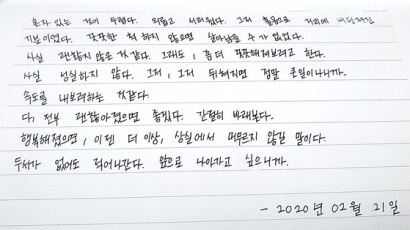 혼자 있는 것이 두렵다. 외롭고 서러웠다. 그저 홀몸으로 거리에 내던져진
기분이었다. 꿋꿋한 척 하지 않으면 살아남을 수가 없었다.
사실 괜찮지 않은 것 같다. 그래도, 좀 더 꿋꿋해져보려고 한다.
사실 성실하지 않다. 그저, 그저 뒤쳐지면 정말 큰일이나니까.
속도를 내보려하는 것같다.
다, 전부 괜찮아졌으면 좋겠다. 간절히 바래본다.
행복해졌으면, 이젠 더 이상, 상실에서 머무르지 않길 말이다.
두서가 없어도 적어나간다. 앞으로 나아가고 싶으니까.
- 2020년 02월 21일